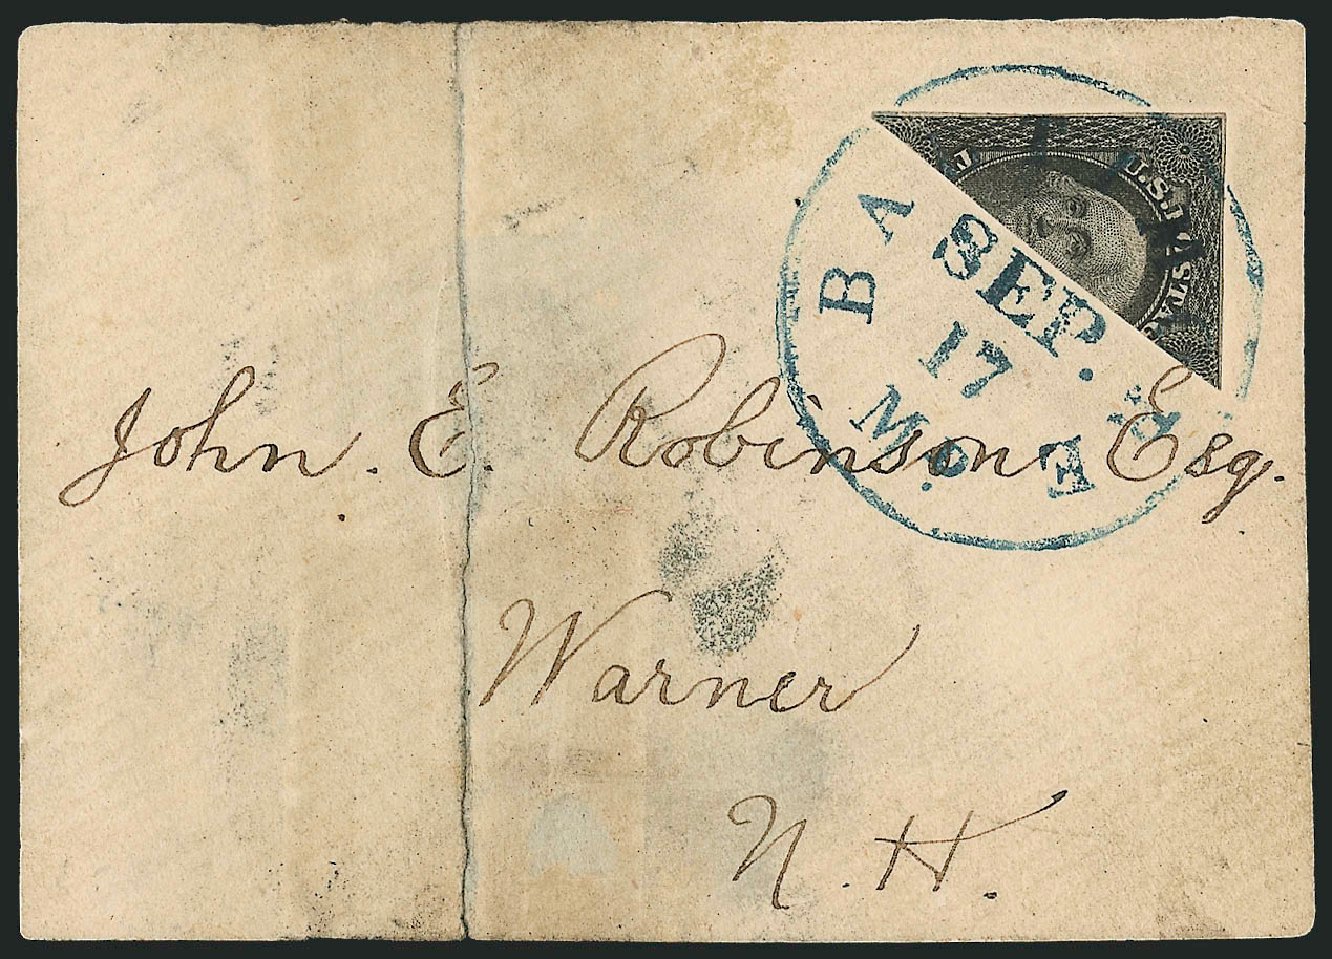 BALTIMORE
SEP.
17
Md.
U.S. POSTAG
John. E. Robinson Esq.
Warner
N. H.